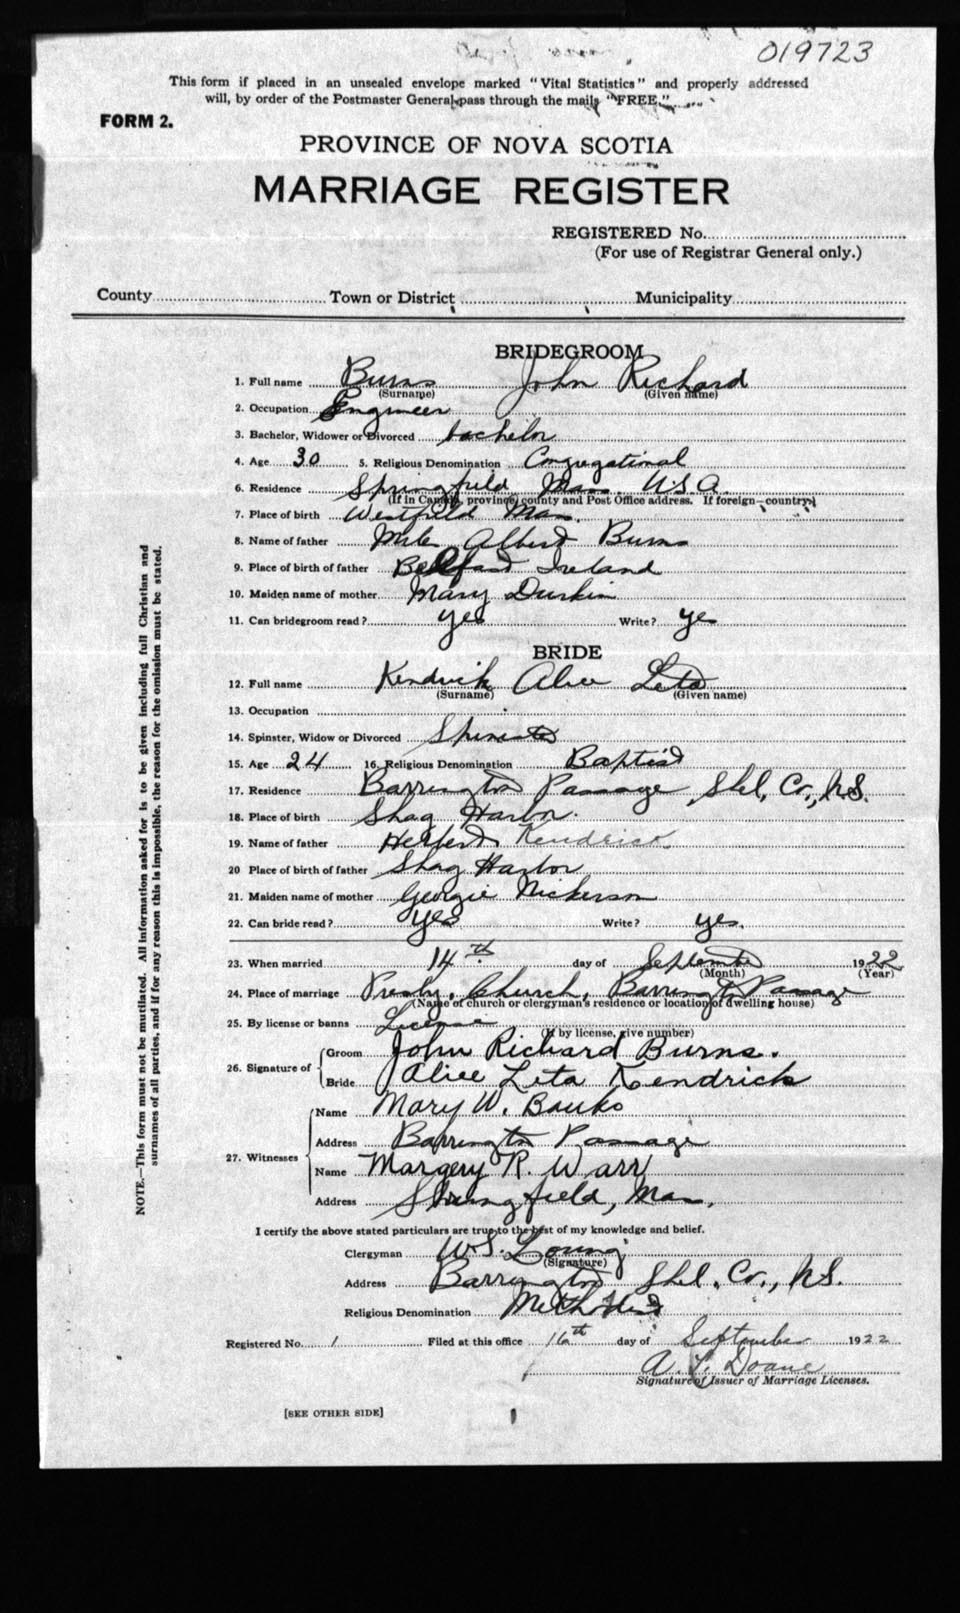 019723
This form if placed in an unsealed envelope marked "Vital Statistics" and properly addressed
will, by order of the Postmaster General, pass through the mails "FREE."
FORM 2.
PROVINCE OF NOVA SCOTIA
MARRIAGE REGISTER
REGISTERED No.
(For use of Registrar General only.)
County Town or District Municipality
BRIDEGROOM
1. Full name Burns John Richard
(Surname) (Given name)
2. Occupation Engineer
3. Bachelor, Widower or Divorced bachelor
4. Age 30 5. Religious Denomination Congregational
6. Residence Springfield Mass. U.S.A.
(If in Canada, province, county and Post Office address. If foreign—country)
7. Place of birth Westfield Mass.
8. Name of father Albert Burns
9. Place of birth of father Belfast Ireland
10. Maiden name of mother Mary Durkin
11. Can bridegroom read? yes Write? yes
BRIDE
12. Full name Kendrick Alice Leta
(Surname) (Given name)
13. Occupation
14. Spinster, Widow or Divorced Spinster
15. Age 24 16. Religious Denomination Baptist
17. Residence Barrington Passage Shel. Co., N.S.
18. Place of birth Shag Harbor.
19. Name of father Kendrick
20 Place of birth of father Shag Harbor
21. Maiden name of mother Georgie Nickerson
22. Can bride read? yes Write? yes.
23. When married 14th day of September 1922
(Month) (Year)
24. Place of marriage Presby. Church, Barrington Passage
(Name of church or clergyman's residence or location of dwelling house)
25. By license or banns License
(If by license, give number)
26. Signature of Groom John Richard Burns.
Bride Alice Leta Kendrick
27. Witnesses Name Mary W. Banks
Address Barrington Passage
Name Margery R. Warr
Address Springfield, Mass.
I certify the above stated particulars are true to the best of my knowledge and belief.
Clergyman W.S. Young
(Signature)
Address Barrington Shel. Co., N.S.
Religious Denomination Methodist
Registered No. 1 Filed at this office 16th day of September 1922
A. L. Doane
Signature of Issuer of Marriage Licenses.
[SEE OTHER SIDE]
NOTE.—This form must not be mutilated. All information asked for is to be given including full Christian and
surnames of all parties, and if for any reason this is impossible, the reason for the omission must be stated.